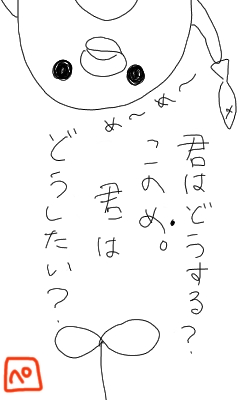 め〜め〜
君はどうする?
このめ。
君は
どうしたい?
ペ